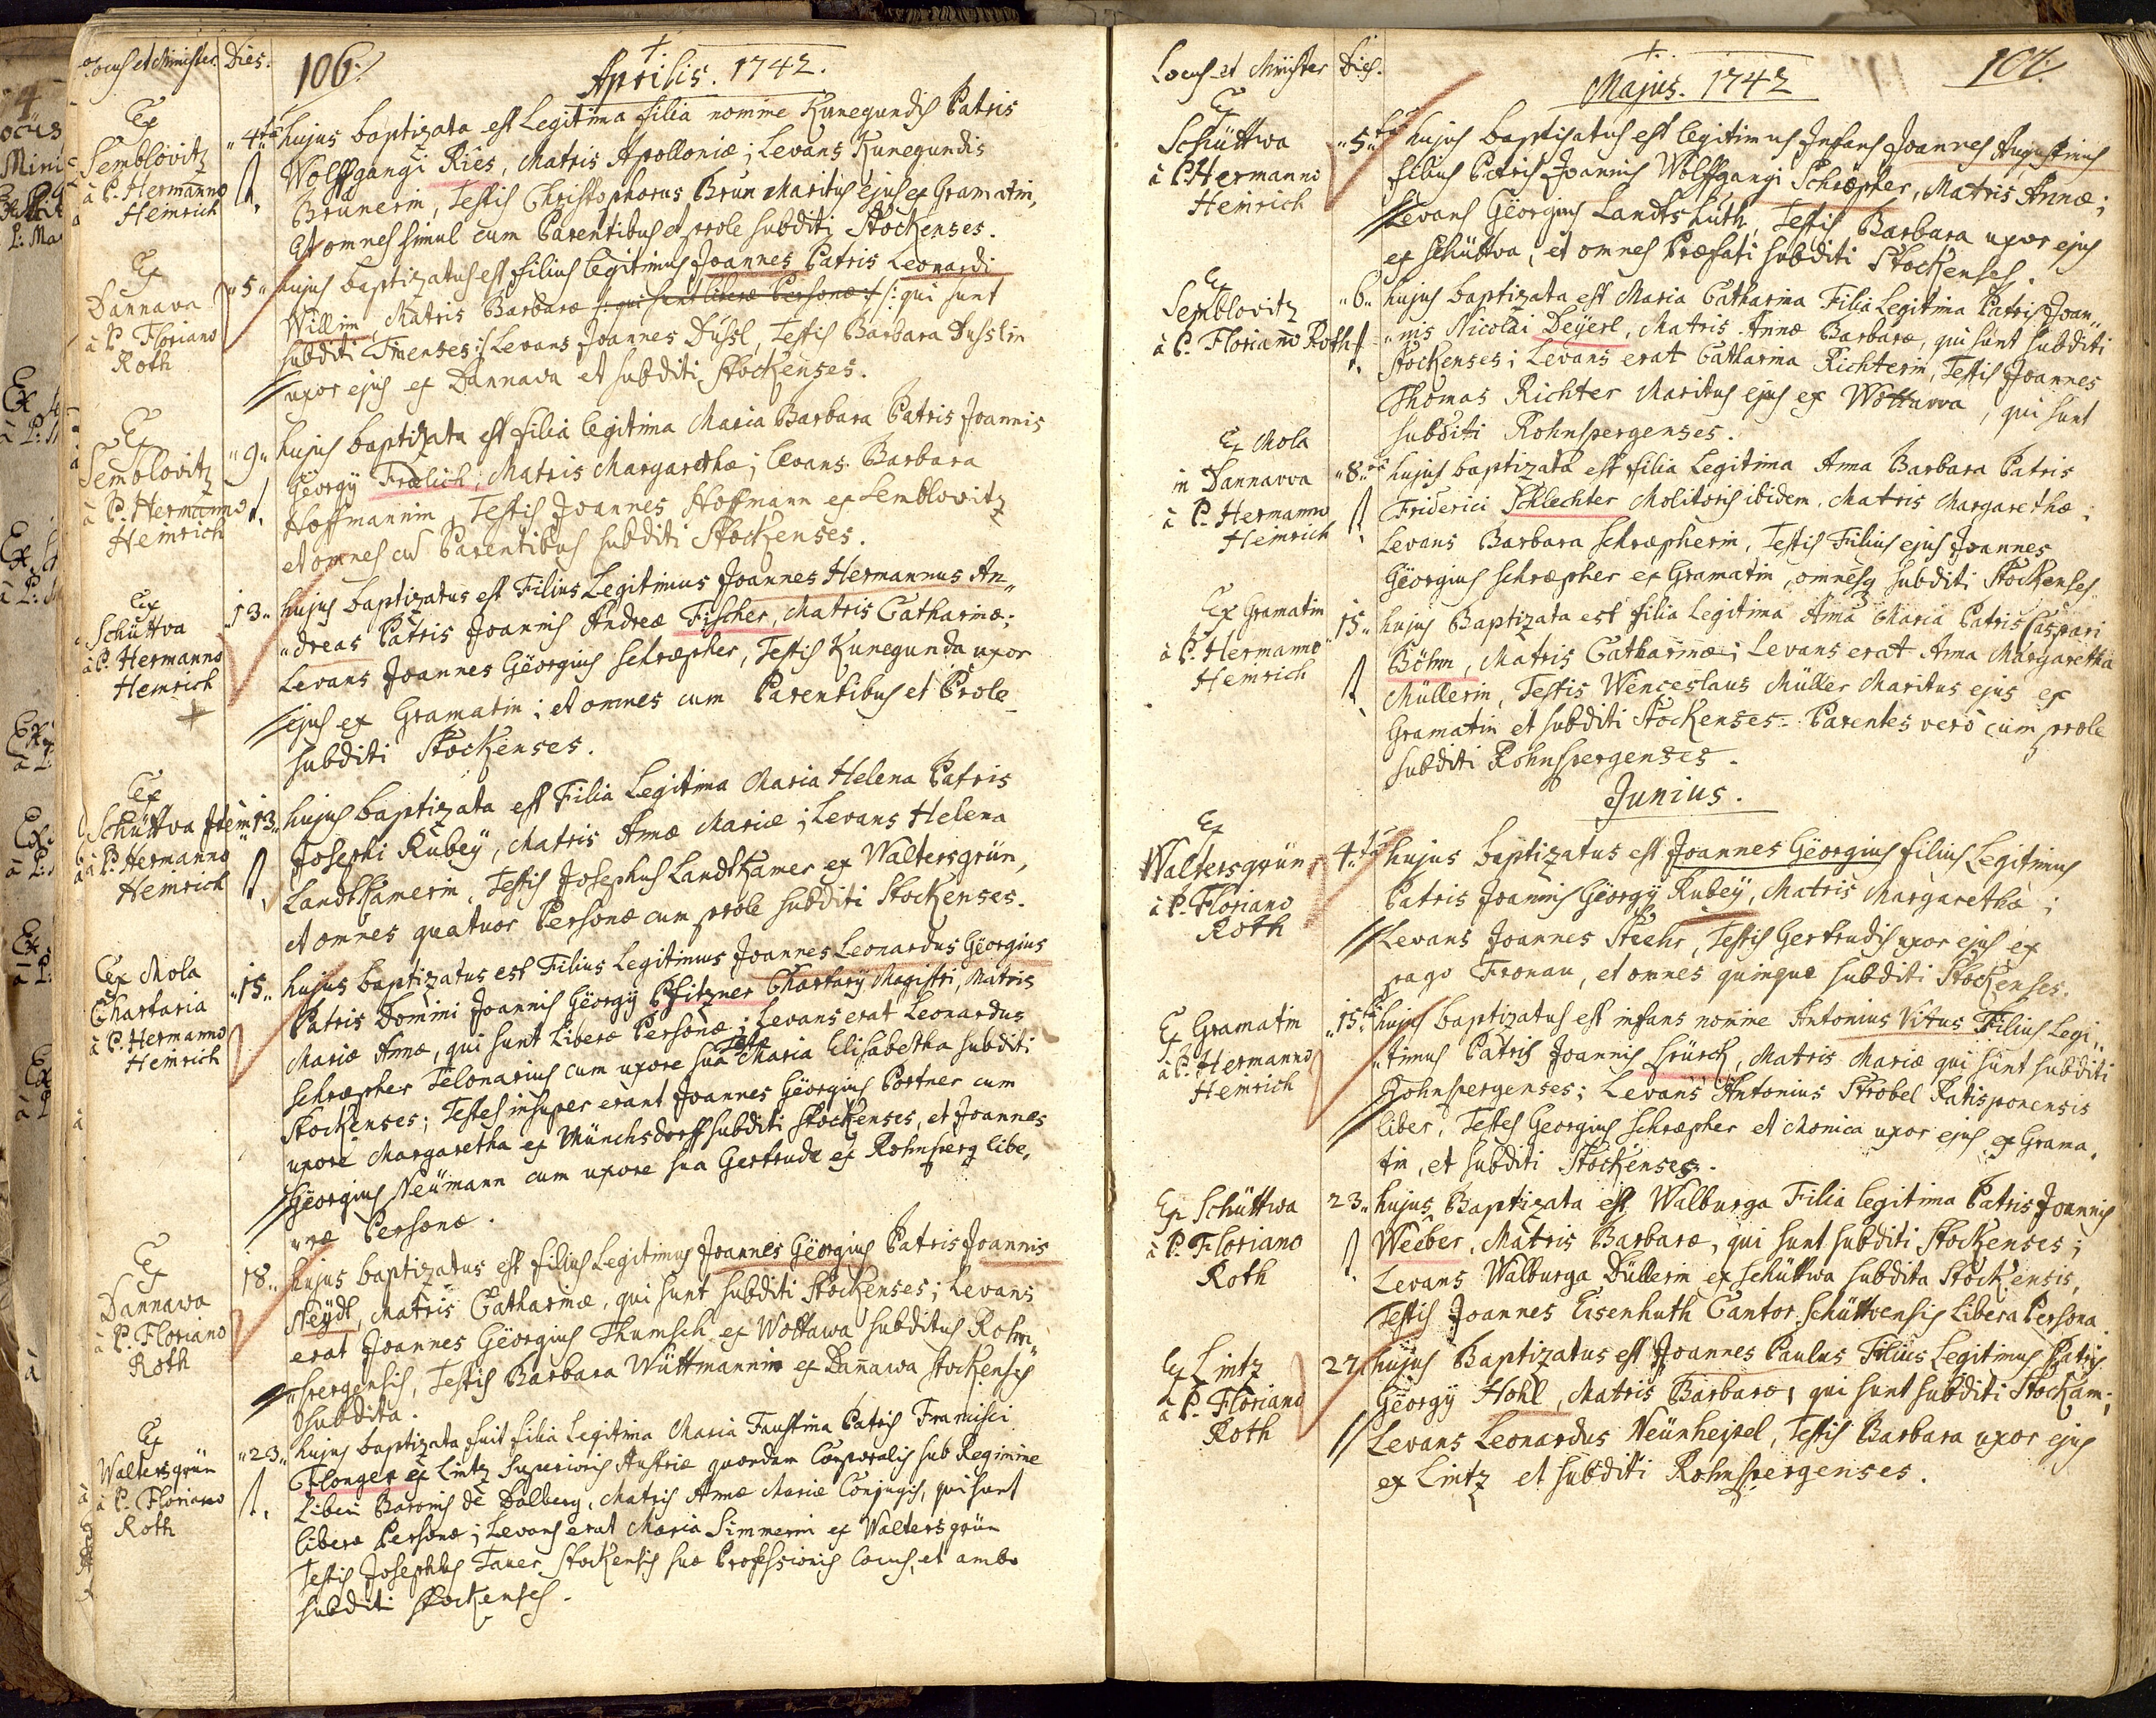 Locus et Minister. Dies. 106.
Aprilis. 1742.
Ex
Semblovitz
à P. Hermanno
Heinrich
"4ta hujus baptizata est Legitima filia nomine Kunegundis Patris
Wolffgangi Ries, Matris Apolloniæ; Levans Kunegundis
Brunerin, Testis Christophorus Brun Maritus ejus ex Gramatin,
et omnes simul cum Parentibus et prole subditi Stockenses.
Ex
Dannava
à P. Floriano
Roth
"5" hujus baptizatus est filius legitimus Joannes Patris Leonardi
Willim, Matris Barbaræ /: qui sunt liberæ Personæ :/ /: qui sunt
subditi :/ Levans Joannes Düssl, Testis Barbara Dusslin
uxor ejus ex Dannava et subditi Stockenses.
Ex
Semblovitz
à P. Hermanno
Heinrich
"9" hujus baptizata est filia legitima Maria Barbara Patris Joannis
Georgÿ Frælich, Matris Margarethæ; levans Barbara
Hoffmannin, Testis Joannes Hoffmann ex Semblovitz
et omnes cū Parentibus subditi Stockenses.
Ex
Schuttva
à P. Hermanno
Heinrich
"13" hujus baptizatus est Filius Legitimus Joannes Hermannus An"
"dreas Patris Joannis Andreæ Fischer, Matris Catharinæ;
Levans Joannes Gëorgius Schræpher, Testis Kunegunda uxor
ejus ex Gramatin; et omnes cum Parentibus et Prole
subditi Stockenses.
Ex
Schuttva Item
à P. Hermanno
Heinrich
13" hujus baptizata est Filia Legitima Maria Helena Patris
Josephi Rubeÿ, Matris Annæ Mariæ; Levans Helena
Landtkamerin, Testis Josephus Landtkamer ex Waltersgrün,
et omnes quatuor Personæ cum prole subditi Stockenses.
Ex Mola
Chartaria
à P. Hermanno
Heinrich
"15" hujus baptizatus est Filius Legitimus Joannes Leonardus Gëorgius
Patris Domini Joannis Gëorgÿ Pfitzner Chartarÿ Magistri, Matris
Mariæ Annæ, qui sunt Liberæ Personæ; Levans erat Leonardus
Schræpher Telonarius cum uxore sua Teste Maria Elisabetha subditi
Stockenses; Testes insuper erant Joannes Gëorgius Portner cum
uxore Margaretha ex Münchsdorff subditi Stockenses, et Joannes
Gëorgius Neümann cum uxore sua Gertrude ex Rohnsperg libe"
"ræ Personæ.
Ex
Dannawa
à P. Floriano
Roth
18" hujus baptizatus est filius Legitimus Joannes Gëorgius Patris Joannis
Neÿdl, Matris Catharinæ, qui sunt subditi Stockenses; Levans
erat Joannes Gëorgius Thumsch ex Wottawa subditus Rohn"
"spergensis, Testis Barbara Wüttmannin ex Dañawa Stockensis
subdita.
Ex
Waltersgrün
à P. Floriano
Roth
"23" hujus baptizata fuit filia Legitima Maria Faustina Patris Francisci
Flonger ex Lintz Superioris Austriæ quondam Corporalis sub Regimine
Liberi Baronis de Dalberg, Matris Annæ Mariæ Conjugis, qui sunt
liberæ Personæ; Levans erat Maria Simmerin ex Waltersgrün
Testis Josephus Taner Stockensis suæ Professionis Cocus, et ambo
subditi Stockenses.
Locus et Minister Dies.
Majus. 1742
107.
Ex
Schüttwa
à P. Hermanno
Heinrich
"5ta hujus baptizatus est legitimus Infans Joannes Augustinus
filius Patris Joannis Wolffgangi Schræpher, Matris Annæ;
Levans Gëorgius Landtshuth, Testis Barbara uxor ejus
ex Schüttva, et omnes Præfati subditi Stockenses.
Ex
Semblovitz
à P. Floriano Roth
"6" hujus baptizata est Maria Catharina Filia Legitima Patris Joan"
"nis Nicolai Deÿerl, Matris Annæ Barbaræ, qui sunt subditi
Stockenses; Levans erat Catharina Richterin, Testis Joannes
Thomas Richter Maritus ejus ex Wottawa, qui sunt
subditi Rohnspergenses.
Ex Mola
in Dannawa
à P. Hermanno
Heinrich
"8va hujus baptizata est filia Legitima Anna Barbara Patris
Friderici Schlechter Molitoris ibidem, Matris Margarethæ;
Levans Barbara Schræpherin, Testis Filius ejus Joannes
Gëorgius Schræpher ex Gramatin, omnesq subditi Stockenses.
Ex Gramatin
à P. Hermanno
Heinrich
15" hujus Baptizata est filia Legitima Anna Maria Patris Caspari
Böhm, Matris Catharinæ; Levans erat Anna Margaretha
Müllerin, Testis Wenceslaus Müller Maritus ejus ex
Gramatin et subditi Stockenses. Parentes verò cum prole
subditi Rohnspergenses.
Junius.
Ex
Waltersgrün
à P. Floriano
Roth
4ta hujus baptizatus est Joannes Gëorgius filius Legitimus
Patris Joannis Gëorgÿ Rubeÿ, Matris Margarethæ;
Levans Joannes Stehr, Testis Gertrudis uxor ejus ex
pago Fronau, et omnes quinque subditi Stockenses.
Ex Gramatin
à P. Hermanno
Heinrich
"15ta hujus baptizatus est infans nomine Antonius Vitus Filius Legi"
"timus Patris Joannis Hrusck, Matris Mariæ qui sunt subditi
Rohnspergenses; Levans Antonius Strobel Ratisponensis
liber, Testes Georgius Schræpher et Monica uxor ejus ex Grama"
tin, et subditi Stockenses.
Ex Schüttwa
à P. Floriano
Roth
23" hujus Baptizata est Walburga Filia legitima Patris Joannis
Weeber, Matris Barbaræ, qui sunt subditi Stockenses;
Levans Walburga Düllerin ex Schüttwa subdita Stockensis,
Testis Joannes Eisenhuth Cantor Schüttvensis Libera Persona.
Ex Lintz
à P. Floriano
Roth
27 hujus Baptizatus est Joannes Paulus Filius Legitimus Patris
Gëorgÿ Hohl, Matris Barbaræ, qui sunt subditi Stockam;
Levans Leonardus Neünheisel, Testis Barbara uxor ejus
ex Lintz et subditi Rohnspergenses.